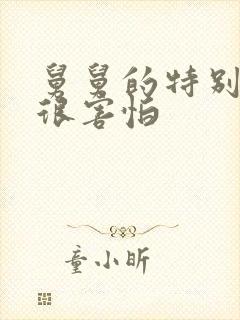 舅舅的特别
很害怕
童小昕